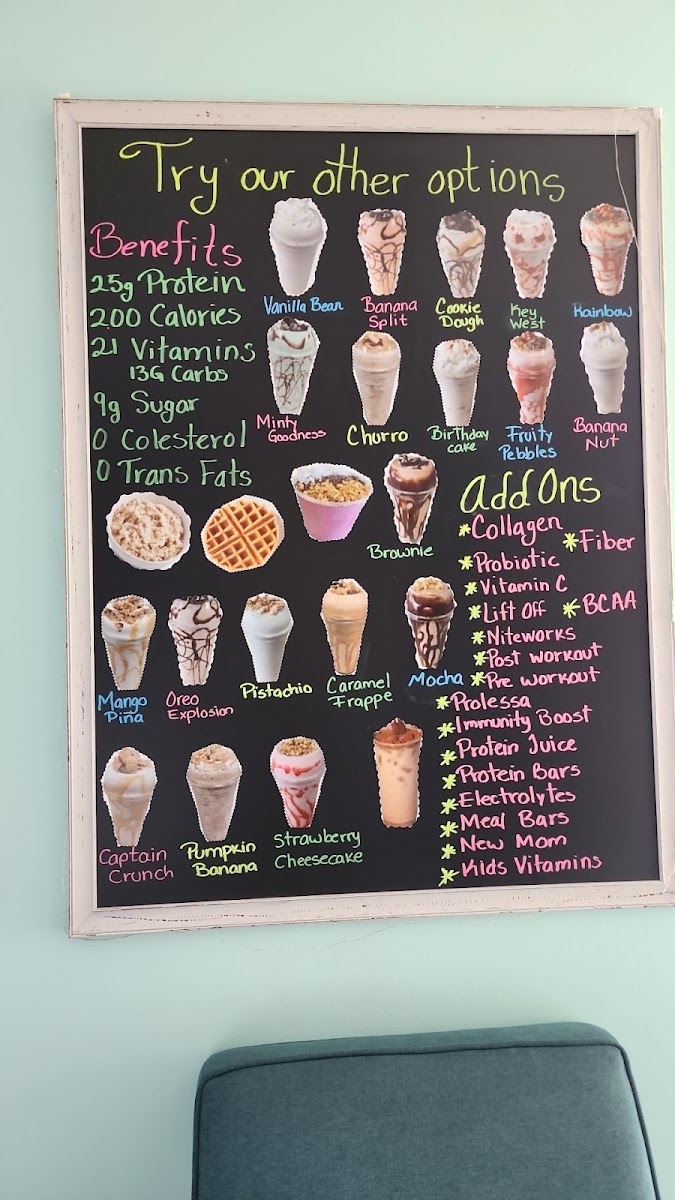 Try our other options
Benefits
25g Protein
200 Calories
21 Vitamins
13G Carbs
9g Sugar
0 Colesterol
0 Trans Fats
Vanilla Bean
Banana
Split
Cookie
Dough
Key
West
Rainbow
Minty
Goodness
Churro
Birthday
cake
Fruity
Pebbles
Banana
Nut
Brownie
Mango
Piña
Oreo
Explosion
Pistachio
Caramel
Frappe
Mocha
Captain
Crunch
Pumpkin
Banana
Strawberry
Cheesecake
add Ons
*Collagen
*Fiber
*Probiotic
*Vitamin C
*Lift Off
*BCAA
*Niteworks
*Post workout
*Pre workout
*Prolessa
*Immunity Boost
*Protein Juice
*Protein Bars
*Electrolytes
*Meal Bars
*New Mom
*Kids Vitamins